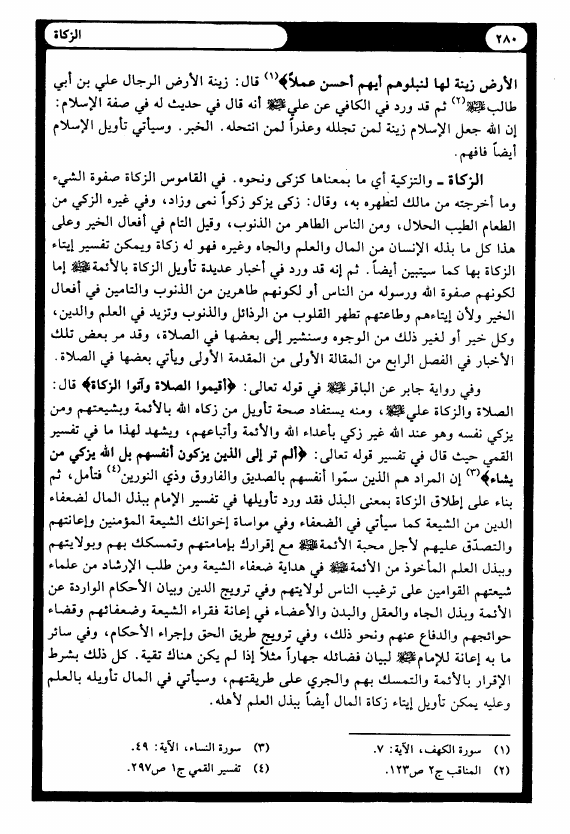 ٢٨٠
الزكاة
الأرض زينة لها لنبلوهم أيهم أحسن عملاً﴾(١) قال: زينة الأرض الرجال علي بن أبي
طالب ﷺ(٢) ثم قد ورد في الكافي عن علي ﷺ أنه قال في حديث له في صفة الإسلام:
إن الله جعل الإسلام زينة لمن تجلله وعذراً لمن انتحله. الخبر. وسيأتي تأويل الإسلام
أيضاً فافهم.
الزكاة ـ والتزكية أي ما بمعناها كزكى ونحوه. في القاموس الزكاة صفوة الشيء
وما أخرجته من مالك لتطهره به، وقال: زكى يزكو زكواً نمى وزاد، وفي غيره الزكي من
الطعام الطيب الحلال، ومن الناس الطاهر من الذنوب، وقيل التام في أفعال الخير وعلى
هذا كل ما بذله الإنسان من المال والعلم والجاه وغيره فهو له زكاة ويمكن تفسير إيتاء
الزكاة بها كما سيتبين أيضاً. ثم إنه قد ورد في أخبار عديدة تأويل الزكاة بالأئمة ﷺ إما
لكونهم صفوة الله ورسوله من الناس أو لكونهم طاهرين من الذنوب والتامين في أفعال
الخير ولأن إيتاءهم وطاعتهم تطهر القلوب من الرذائل والذنوب وتزيد في العلم والدين،
وكل خير أو لغير ذلك من الوجوه وسنشير إلى بعضها في الصلاة، وقد مر بعض تلك
الأخبار في الفصل الرابع من المقالة الأولى من المقدمة الأولى ويأتي بعضها في الصلاة.
وفي رواية جابر عن الباقر ﷺ في قوله تعالى: ﴿أقيموا الصلاة وآتوا الزكاة﴾ قال:
الصلاة والزكاة علي ﷺ، ومنه يستفاد صحة تأويل من زكاه الله بالأئمة وبشيعتهم ومن
يزكي نفسه وهو عند الله غير زكي بأعداء الله والأئمة وأتباعهم، ويشهد لهذا ما في تفسير
القمي حيث قال في تفسير قوله تعالى: ﴿ألم تر إلى الذين يزكون أنفسهم بل الله يزكي من
يشاء﴾(٣) إن المراد هم الذين سمّوا أنفسهم بالصديق والفاروق وذي النورين(٤) فتأمل، ثم
بناء على إطلاق الزكاة بمعنى البذل فقد ورد تأويلها في تفسير الإمام ببذل المال لضعفاء
الدين من الشيعة كما سيأتي في الضعفاء وفي مواساة إخوانك الشيعة المؤمنين وإعانتهم
والتصدّق عليهم لأجل محبة الأئمة ﷺ مع إقرارك بإمامتهم وتمسكك بهم وبولايتهم
وببذل العلم المأخوذ من الأئمة ﷺ في هداية ضعفاء الشيعة ومن طلب الإرشاد من علماء
شيعتهم القوامين على ترغيب الناس لولايتهم وفي ترويج الدين وبيان الأحكام الواردة عن
الأئمة وبذل الجاه والعقل والبدن والأعضاء في إعانة فقراء الشيعة وضعفائهم وقضاء
حوائجهم والدفاع عنهم ونحو ذلك، وفي ترويج طريق الحق وإجراء الأحكام، وفي سائر
ما به إعانة للإمام ﷺ لبيان فضائله جهاراً مثلاً إذا لم يكن هناك تقية. كل ذلك بشرط
الإقرار بالأئمة والتمسك بهم والجري على طريقتهم، وسيأتي في المال تأويله بالعلم
وعليه يمكن تأويل إيتاء زكاة المال أيضاً ببذل العلم لأهله.
(١) سورة الكهف، الآية: ٧.
(٢) المناقب ج٢ ص١٢٣.
(٣) سورة النساء، الآية: ٤٩.
(٤) تفسير القمي ج١ ص٢٩٧.